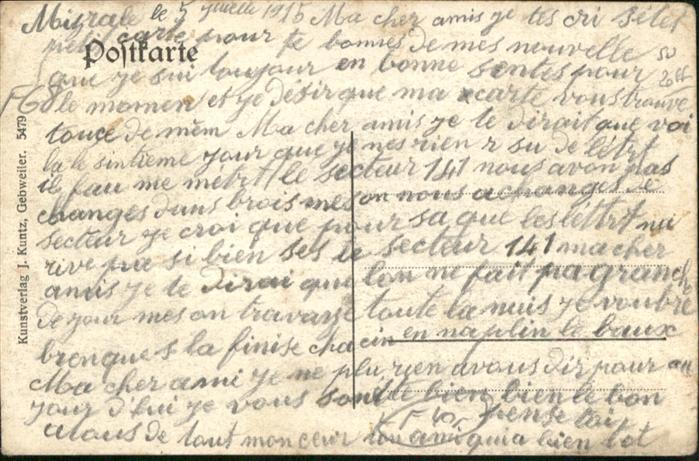 le 5 juielle 1915 Ma cher amis je tes cri se les
petit carte pour te bonnes de mes nouvelle
Postkarte
que je sui toujour en bonne sentes pour
le momen et je desir que ma carte vous trouve
touce de mêm Ma cher amis je te dirait que voi
la le sintieme jour que je nes rien r su de letrt
il fau me metrt le secteur 141 nous avon pas
changes dans trois mes on nous a changes le
secteur je croi que pour sa que les lettrt na
rive pas si bien ses le secteur 141 ma cher
amis je te dirai que lon ne fait pa grand
de jour mes on travaye toute la nuis je
en na plin le
la finise
Ma cher ami je ne plu rien a vous dir pour au
jour d'hui je vous bien bien le bon
pense toi
alous de tout mon ceur ton ami qui a bien tot
Kunstverlag J. Kuntz, Gebweiler. 5479